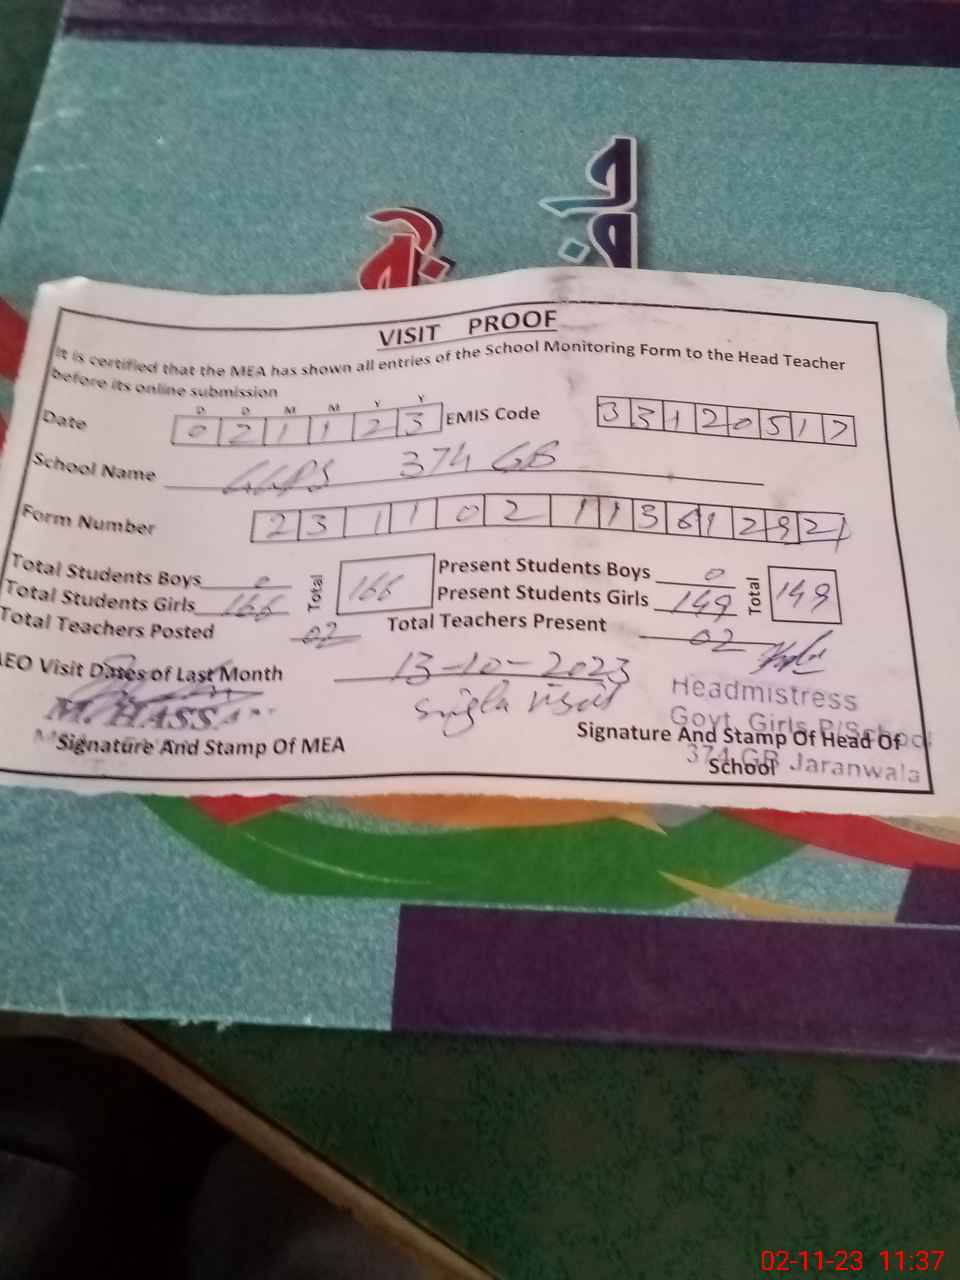 VISIT PROOF
It is certified that the MEA has shown all entries of the School Monitoring Form to the Head Teacher
before its online submission
D D M M Y Y
Date 0 2 1 1 2 3 EMIS Code 3 3 1 2 0 5 1 7
School Name GGPS 374 GB
Form Number 2 3 1 1 0 2 1 1 3 6 1 2 9 2
Total Students Boys 0 Total 166 Present Students Boys 0 Total 149
Total Students Girls 166 Present Students Girls 149
Total Teachers Posted 02 Total Teachers Present 02
AEO Visit Dates of Last Month 13-10-2023
Single visit
M. HASSAN
Headmistress
Govt. Girls P/School
374 GB Jaranwala
Signature And Stamp Of MEA
Signature And Stamp Of Head Of
School
02-11-23 11:37